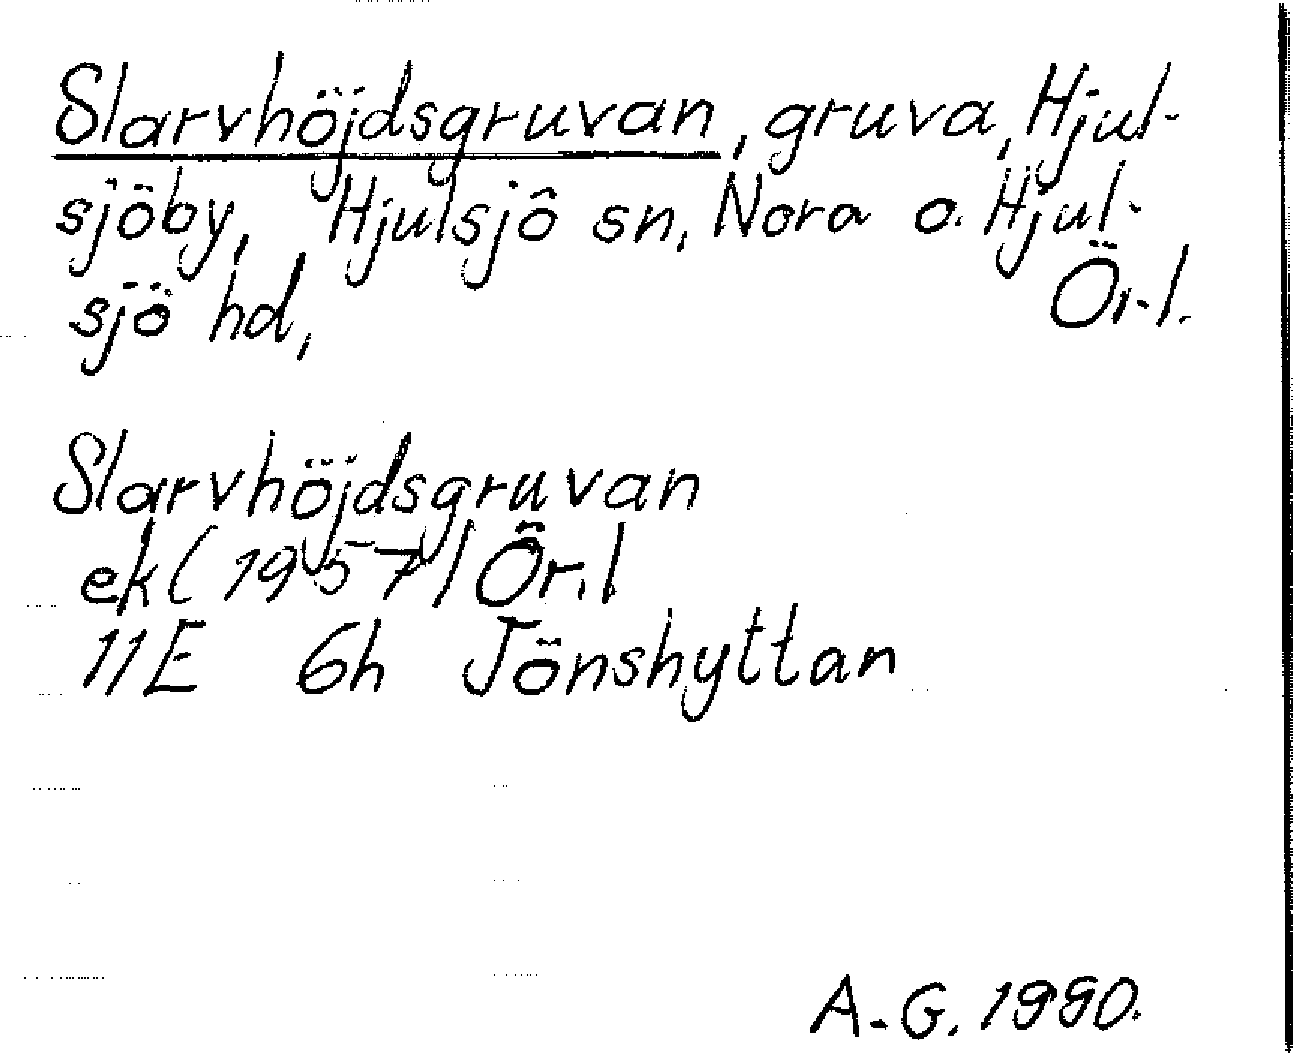 Slarvhöjdsgruvan, gruva, Hjul-
sjöby, Hjulsjö sn, Nora o. Hjul-
sjö hd, Ör.l.
Slarvhöjdsgruvan
ek (1957) Ör.l
11E 6h Jönshyttan
A.G. 1990.